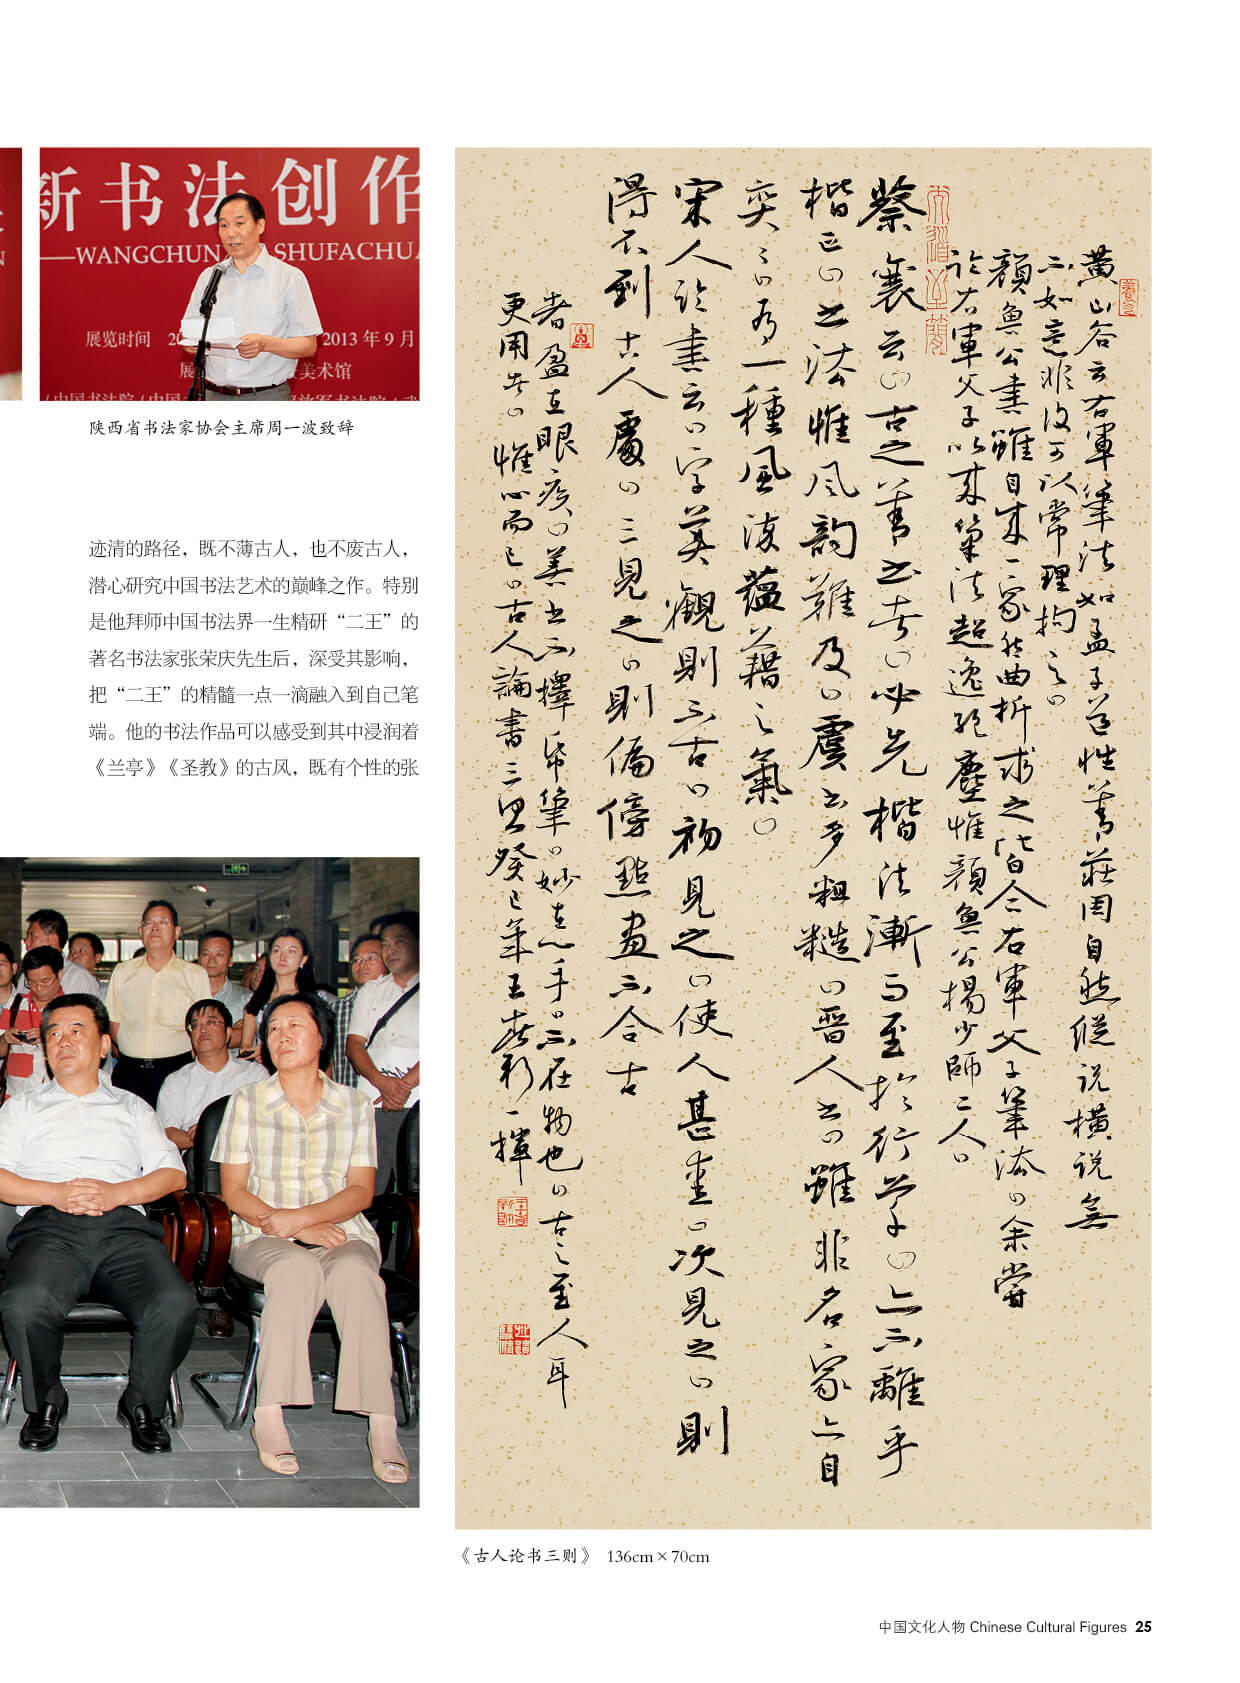 新书法创作
—WANGCHUN SHUFACHUA
N
展览时间 20 2013年9月
展 美术馆
陕西省书法家协会主席周一波致辞
迹清的路径，既不薄古人，也不废古人，
潜心研究中国书法艺术的巅峰之作。特别
是他拜师中国书法界一生精研“二王”的
著名书法家张荣庆先生后，深受其影响，
把“二王”的精髓一点一滴融入到自己笔
端。他的书法作品可以感受到其中浸润着
《兰亭》《圣教》的古风，既有个性的张
黄山谷云右軍筆法如孟子道性善莊周自然縱说横说無
不如意非復可以常理拘之
顏魯公書雖自成一家然曲折求之皆合右軍父子筆法余嘗
论右軍父子以来筆法超逸绝塵惟顏魯公楊少師二人
蔡襄云古之善书者必先楷法漸而至於行草亦不離乎
楷正之法惟风韵難及虞书多粗糙晋人书雖非名家亦自
奕奕有一種風流藴藉之氣
宋人论書云字美觀則不古初見之使人甚愛次見之則
得不到古人處三見之則偏傍點畫不合古
者盈在眼矣善书不擇纸筆妙在心手不在物也古之至人耳
更用者惟心而已古人論書三则癸巳年王春新一揮
《古人论书三则》 136cm×70cm
中国文化人物 Chinese Cultural Figures 25